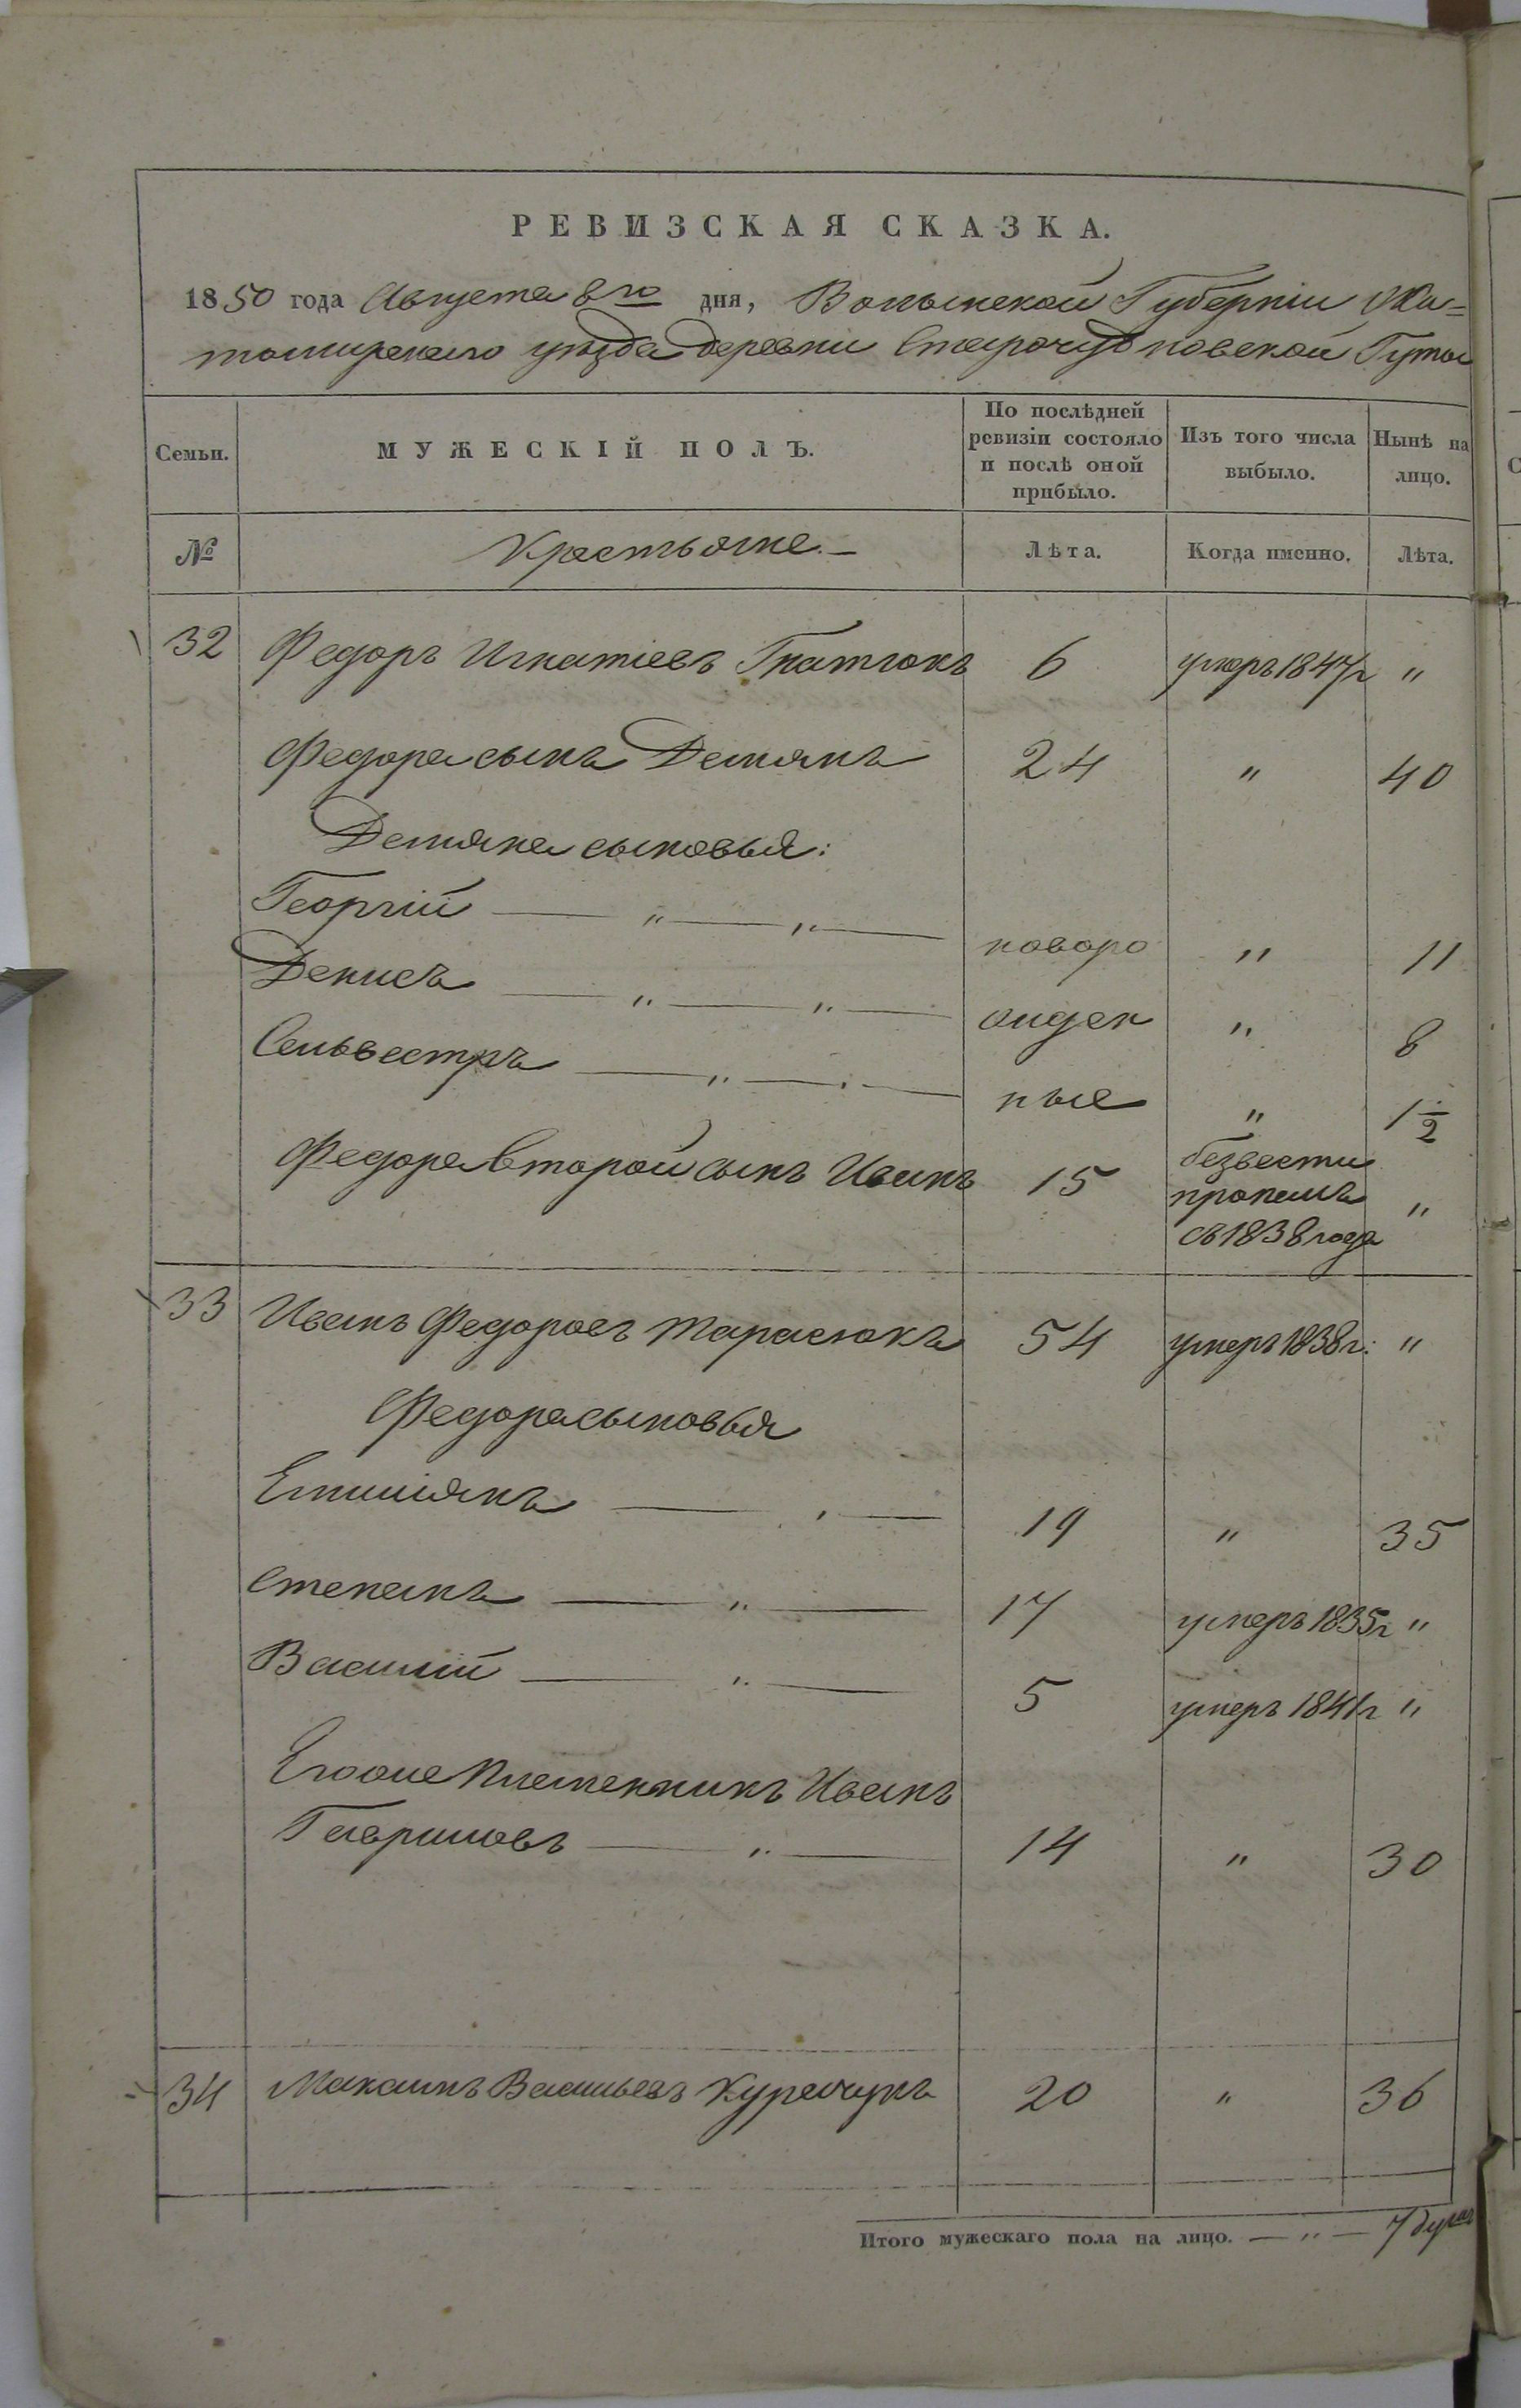 РЕВИЗСКАЯ СКАЗКА.
1850 года Августа 8го дня, Волынской Губерніи Жи=
томирскаго уѣзда деревни Старочудновской Гуты
Семьи. МУЖЕСКІЙ ПОЛЪ. По послѣдней ревизіи состояло и послѣ оной прибыло. Изъ того числа выбыло. Нынѣ на лицо.
№ Крестьяне.— Лѣта. Когда именно. Лѣта.
32 Федоръ Игнатіевъ Гнатюкъ 6 умеръ 1847г "
Федора сынъ Демянъ 24 " 40
Демяна сыновья:
Георгій — " — " — новоро " 11
Денисъ — " — " — жден " 8
Сильвестръ — " — " — ные " 1 1/2
Федора второй сынъ Иванъ 15 безвести пропалъ съ 1838 года "
33 Иванъ Федоровъ Тарасюкъ 54 умеръ 1838г: "
Федора сыновья
Емиліянъ — " — 19 " 35
Степанъ — " — 17 умеръ 1835г "
Василій — " — 5 умеръ 1841г "
Егоже племенникъ Иванъ
Гавриловъ — " — 14 " 30
34 Максимъ Васильевъ 20 " 36
Итого мужескаго пола на лицо. — " — 7 душъ